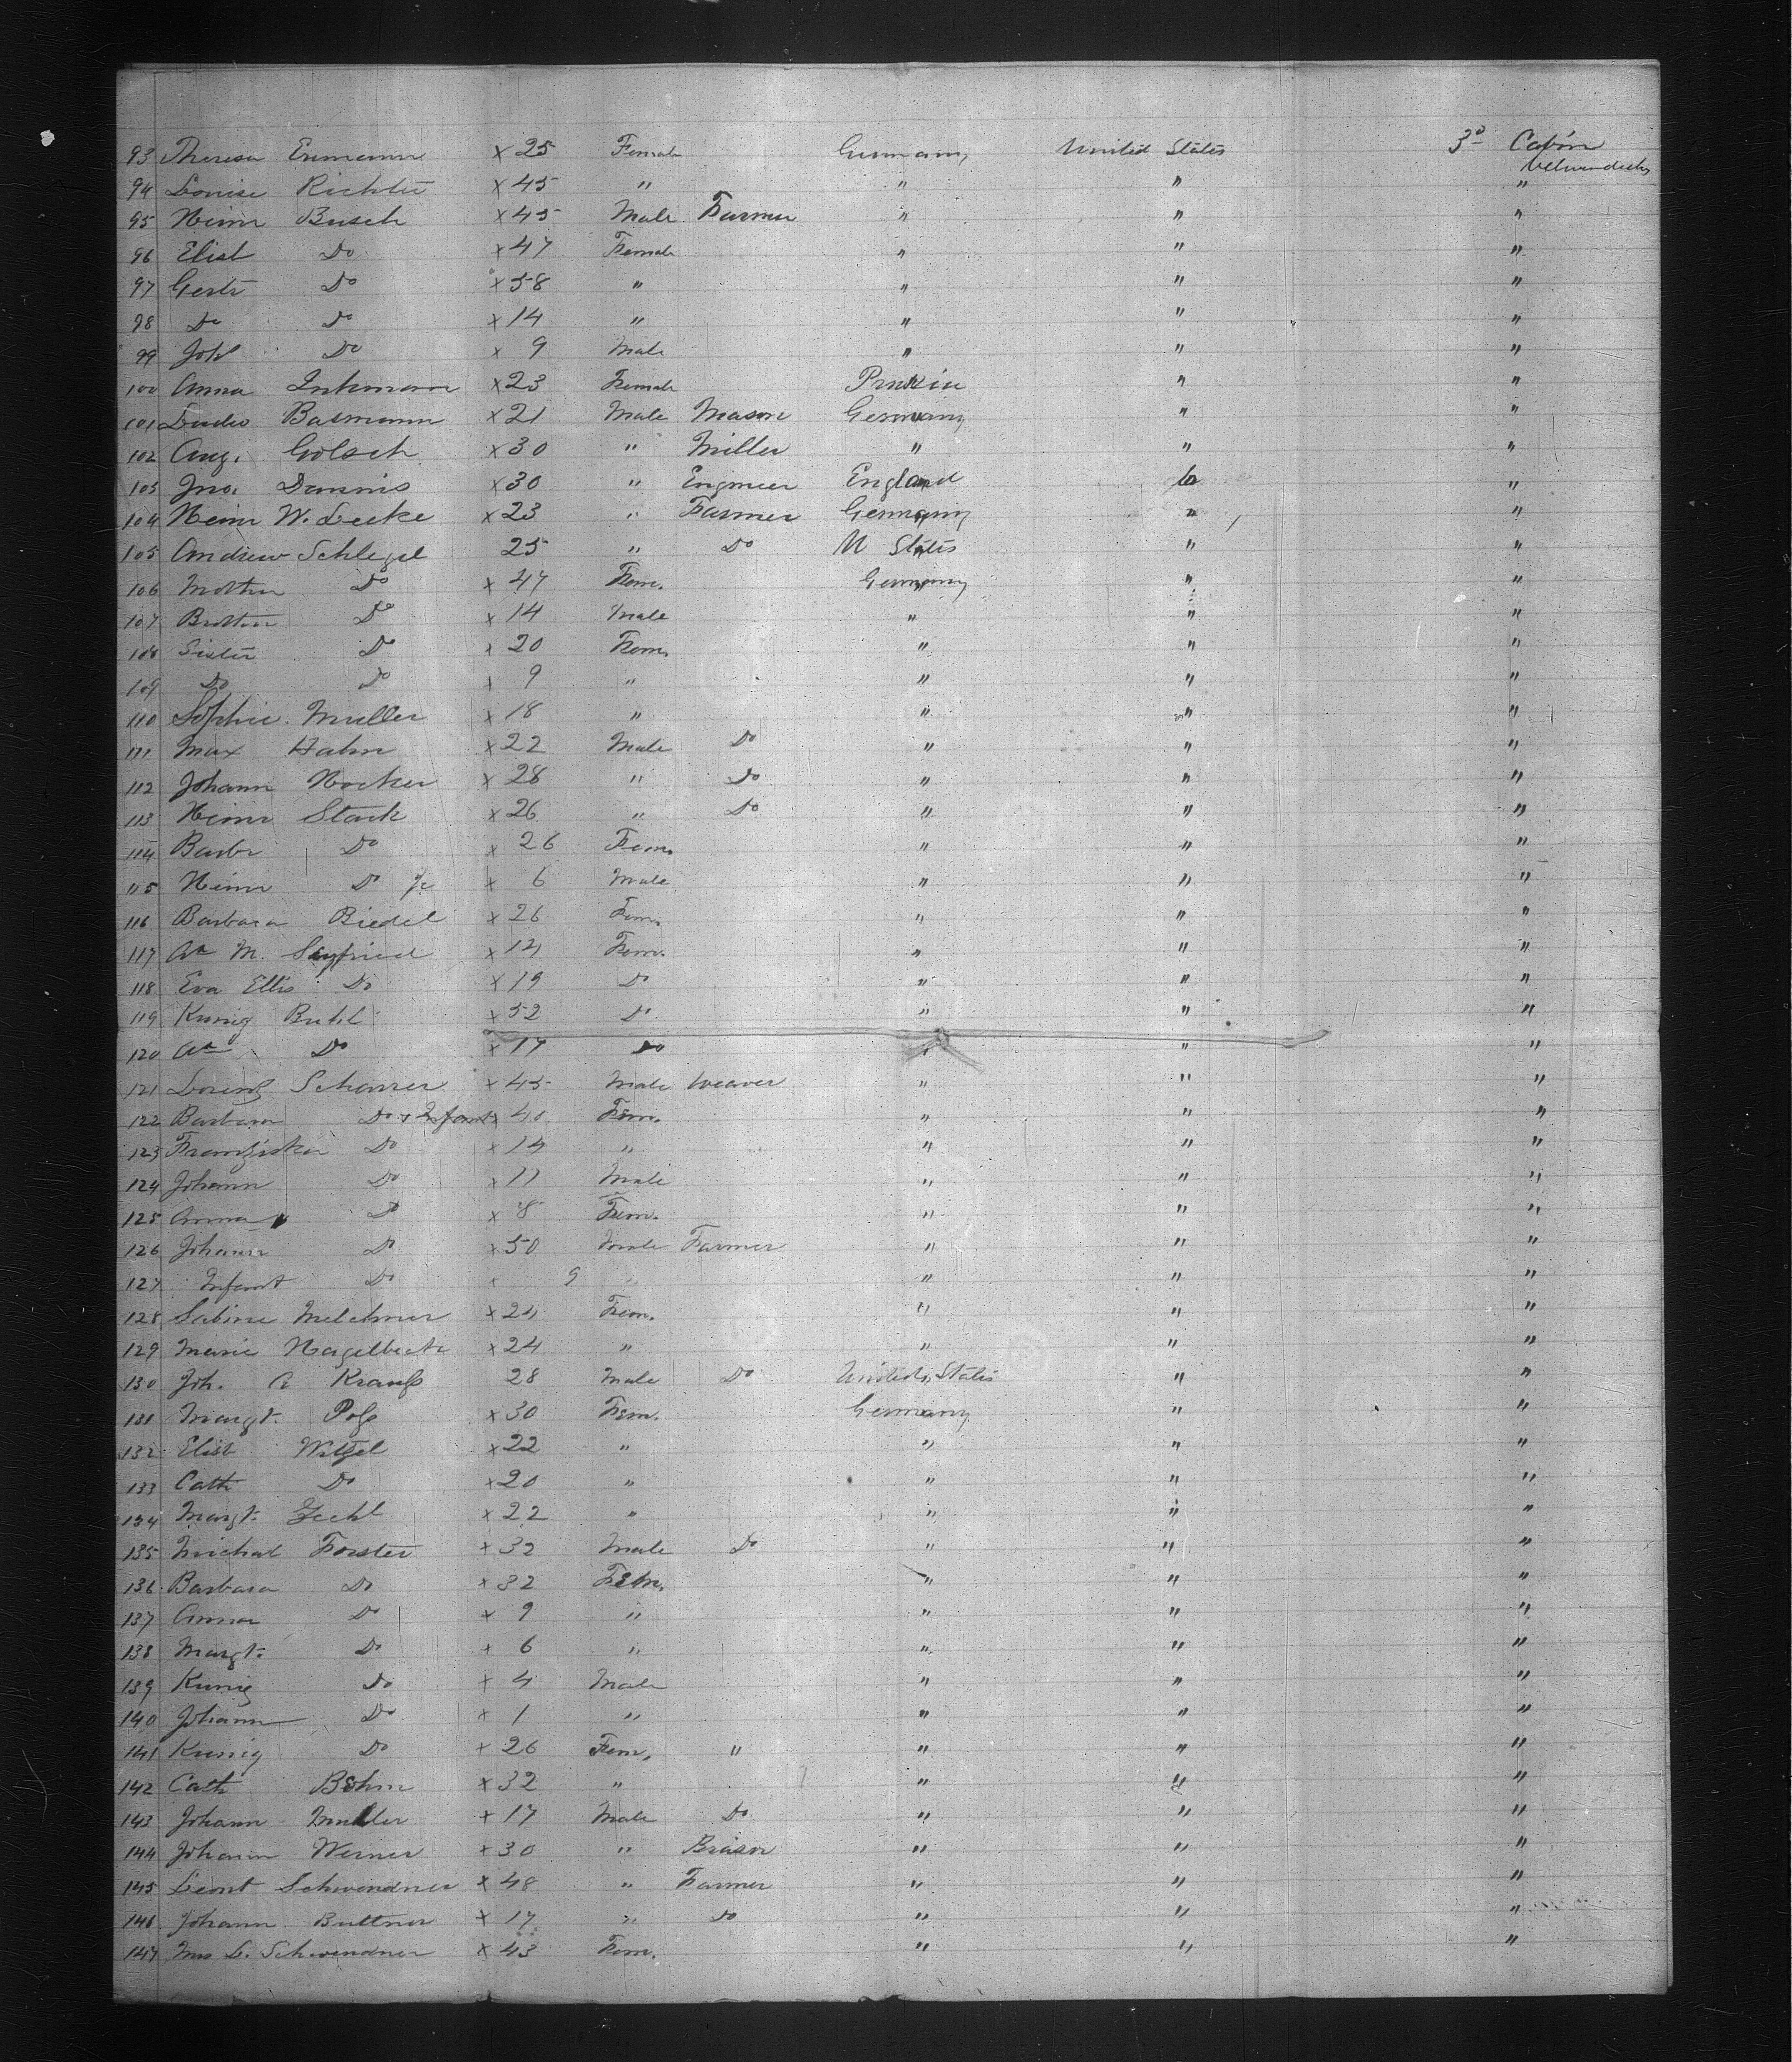 93 Theresa Enmann x 25 Female Germany United States 3d Cabin
94 Louise Richter x 45 " " " Uelvendecks "
95 Heinr Busch x 45 Male Farmer " " "
96 Elisb Do x 47 Female " " "
97 Gertr Do x 58 " " " "
98 Do Do x 14 " " " "
99 Joh Do x 9 Male " " "
100 Anna Inkmann x 23 Female Prussia " "
101 Ludw Basmann x 21 Male Mason Germany " "
102 Aug. Golsch x 30 " Miller " " "
103 Jno. Dennis x 30 " Engineer England " "
104 Heinr W. Lecke x 23 " Farmer Germany " "
105 Andrew Schlegel 25 " Do U States " "
106 Mother Do x 47 Fem. Germany " "
107 Brother Do x 14 Male " " "
108 Sister Do x 20 Fem. " " "
109 Do Do x 9 " " " "
110 Sophie Muller x 18 " " " "
111 Max Hahn x 22 Male Do " " "
112 Johann Hocker x 28 " Do " " "
113 Heinr Stark x 26 " Do " " "
114 Barbr Do x 26 Fem. " " "
115 Heinr Do Jr x 6 Male " " "
116 Barbara Biedel x 26 Fem. " " "
117 Aa M. Seyfried x 14 Fem. " " "
118 Eva Ellis Do x 19 Do " " "
119 Kunig Buhl x 52 Do " " "
120 Aa Do x 17 Do " " "
121 Lorenz Scharrer x 45 Male Weaver " " "
122 Barbara Do & Infant x 40 Fem. " " "
123 Franziska Do x 14 " " " "
124 Johann Do x 11 Male " " "
125 Anna Do x 8 Fem. " " "
126 Johann Do x 50 Male Farmer " " "
127 Infant Do x 9 " " " "
128 Sabine Melchner x 24 Fem. " " "
129 Marie Nagelbeck x 24 " " " "
130 Joh. A Krauß 28 Male Do United States " "
131 Margt. Pols x 30 Fem. Germany " "
132 Elisb Witzel x 22 " " " "
133 Cath Do x 20 " " " "
134 Margt. Zechl x 22 " " " "
135 Michal Forster x 32 Male Do " " "
136 Barbara Do x 32 Fem. " " "
137 Anna Do x 9 " " " "
138 Margt. Do x 6 " " " "
139 Kunig Do x 4 Male " " "
140 Johann Do x 1 " " " "
141 Kunig Do x 26 Fem. " " " "
142 Cath Böhm x 32 " " " "
143 Johann Muller x 17 Male Do " " "
144 Johann Werner x 30 " " " "
145 Leont Schwendner x 48 " Farmer " " "
146 Johann Buttner x 17 " Do " " "
147 Mrs L. Schwendner x 43 Fem. " " "